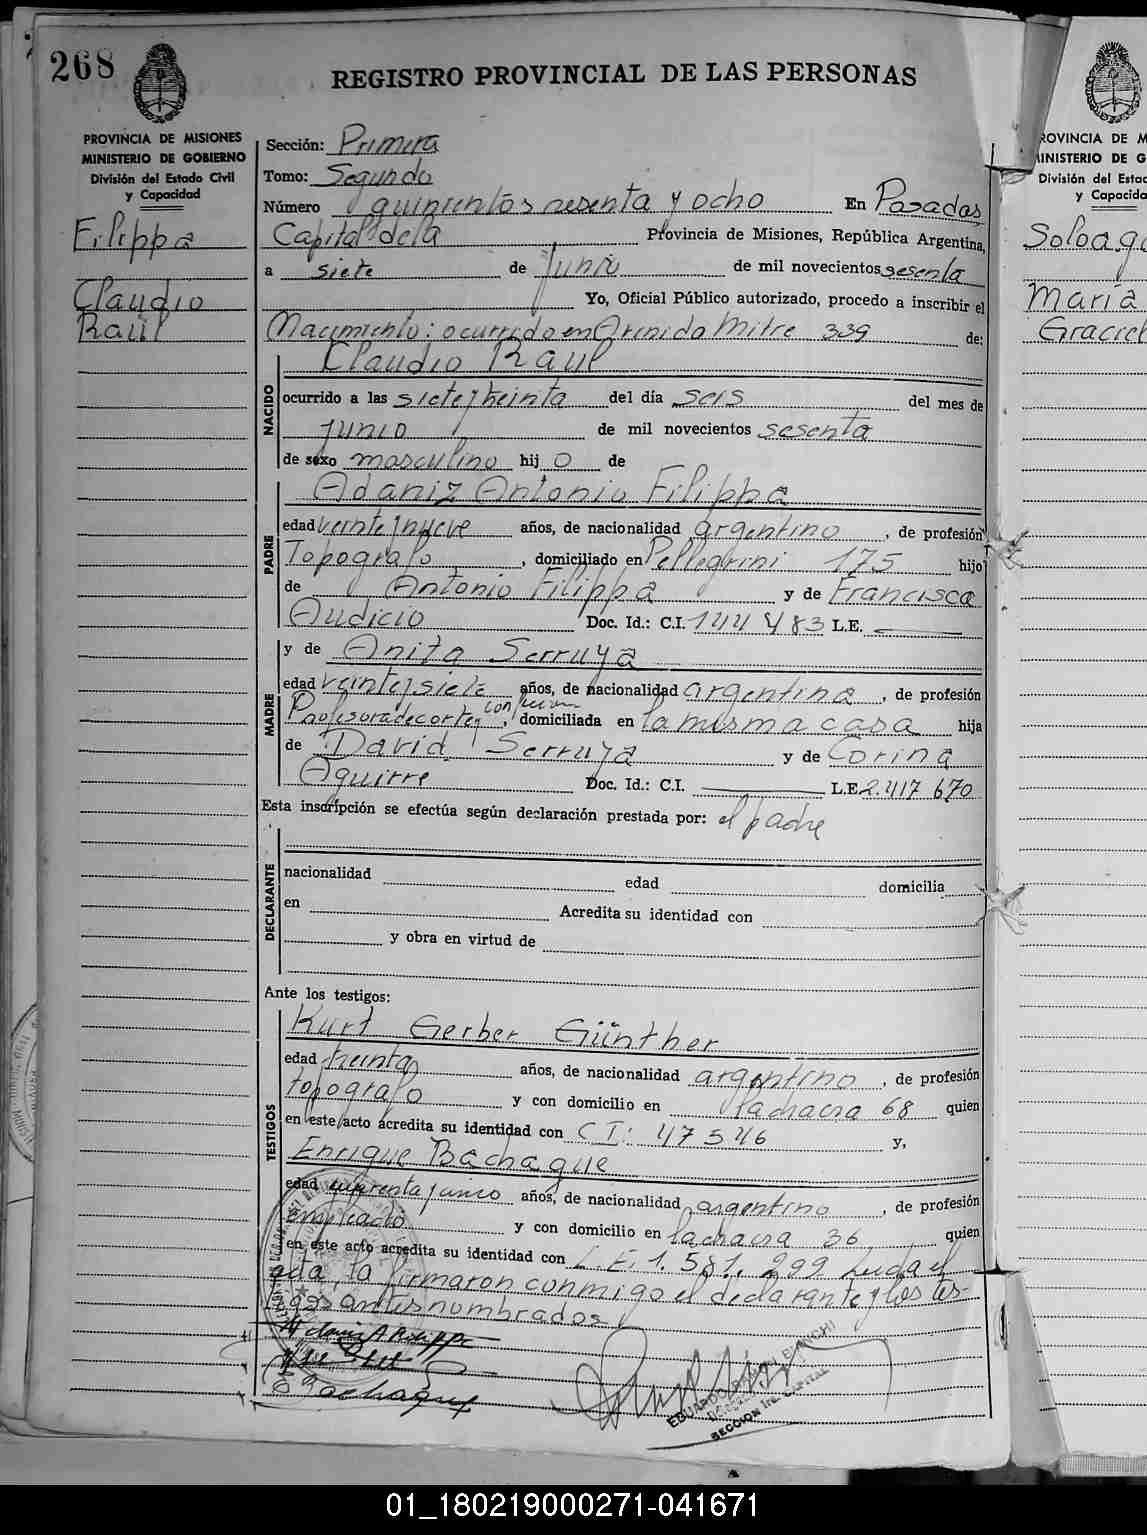 268
REGISTRO PROVINCIAL DE LAS PERSONAS
PROVINCIA DE MISIONES
MINISTERIO DE GOBIERNO
División del Estado Civil
y Capacidad
Filippa
Claudio
Raúl
Sección: Primera
Tomo: Segundo
Número quinientos sesenta y ocho En Posadas
Capital de la Provincia de Misiones, República Argentina,
a siete de Junio de mil novecientos sesenta
Yo, Oficial Público autorizado, procedo a inscribir el
Nacimiento: ocurrido en Avenida Mitre 339 de:
NACIDO
Claudio Raul
ocurrido a las siete y treinta del día seis del mes de
junio de mil novecientos sesenta
de sexo masculino hij o de
PADRE
Adaniz Antonio Filippa
edad veinte y nueve años, de nacionalidad argentino, de profesión
Topografo, domiciliado en Pellegrini 175 hijo
de Antonio Filippa y de Francisca
Audicio Doc. Id.: C.I. 144483 L.E.
MADRE
y de Anita Serruya
edad veinte y siete años, de nacionalidad argentina, de profesión
Profesora de corte y confeccion, domiciliada en la misma casa hija
de David Serruya y de Corina
Aguirre Doc. Id.: C.I. L.E. 2.417 670
Esta inscripción se efectúa según declaración prestada por: el padre
DECLARANTE
nacionalidad edad domicilia
en Acredita su identidad con
y obra en virtud de
Ante los testigos:
TESTIGOS
Kurt Gerber Günther
edad treinta años, de nacionalidad argentino, de profesión
topografo y con domicilio en la chacra 68 quien
en este acto acredita su identidad con C I: 47546 y,
Enrique Bachague
edad cuarenta y cinco años, de nacionalidad argentino, de profesión
empleado y con domicilio en la chacra 36 quien
en este acto acredita su identidad con L.E. 1.581.299 Leida el
acta, la firmaron conmigo el declarante y los tes-
tigos antes nombrados
Adaniz A Filippa
E Bachague
EDUARDO BIANCHI
SECCION 1ra. CAPITAL
PROVINCIA DE M
MINISTERIO DE G
División del Estad
y Capacida
Soloaga
María
Graciel
01_180219000271-041671